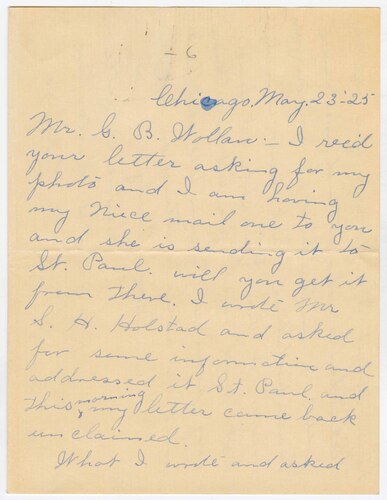 - 6
Chicago, May. 23-25
Mr. G. B. Wollan:- I rec'd
your letter asking for my
photo and I am having
my Niece mail one to you
and she is sending it to
St. Paul. will you get it
from There. I wrote Mr
S. H. Holstad and asked
for some information and
addressed it St. Paul. and
This morning my letter came back
unclaimed.
What I wrote and asked